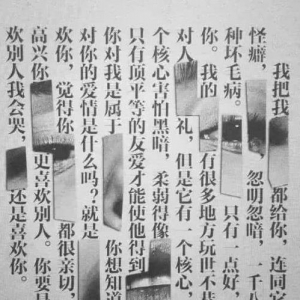 我把我 都给你，连同它
怪癖， 忽明忽暗，一千八
种坏毛病。 只有一点好
你。我的 有很多地方玩世不
对人 礼，但是它有一个核心，
个核心害怕黑暗，柔弱得像
只有顶平等的友爱才能使他得到
你对我是属于 你想知道
对你的爱情是什么吗？就是
欢你，觉得你 都很亲切，
高兴你 更喜欢别人。你要是
欢别人我会哭， 还是喜欢你。